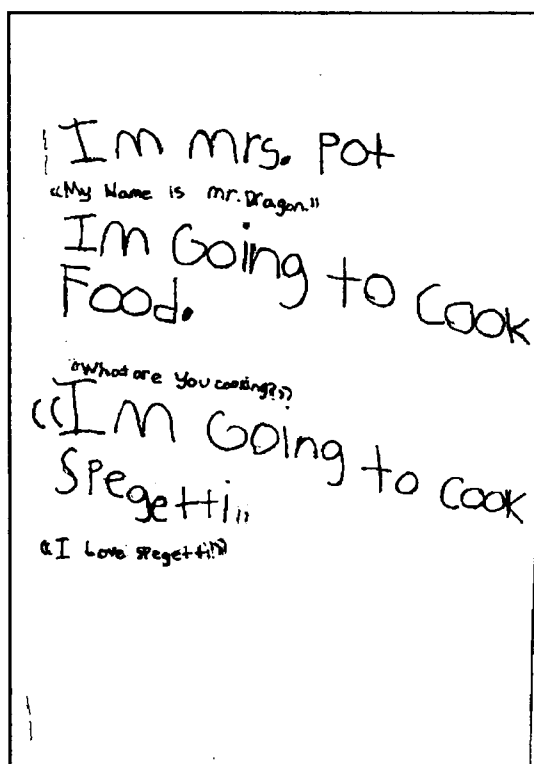 Im mrs. Pot
"My Name is mr. Dragon."
Im Going to cook
Food.
"What are You cooking?"
"Im Going to cook
Spegetti"
"I Love spegetti!"